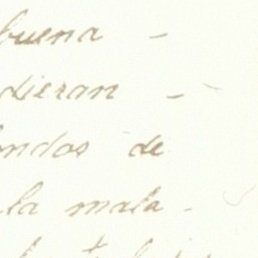 buena -
dieran -
ondos de
la mala -